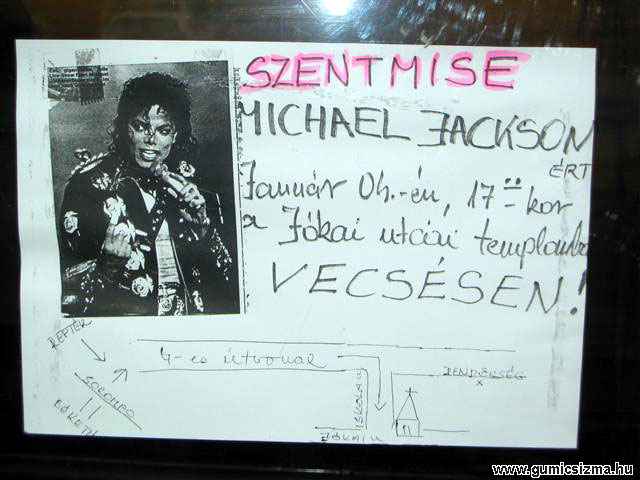 SZENTMISE
MICHAEL JACKSON
ÉRT
Január 06.-én, 17-kor
a Jókai utcai templomba
VECSÉSEN!
REPTÉR
4-es útvonal
SOROMPÓ
ISKOLA
RENDŐRSÉG
X
JÓKAI U.
www.gumicsizma.hu